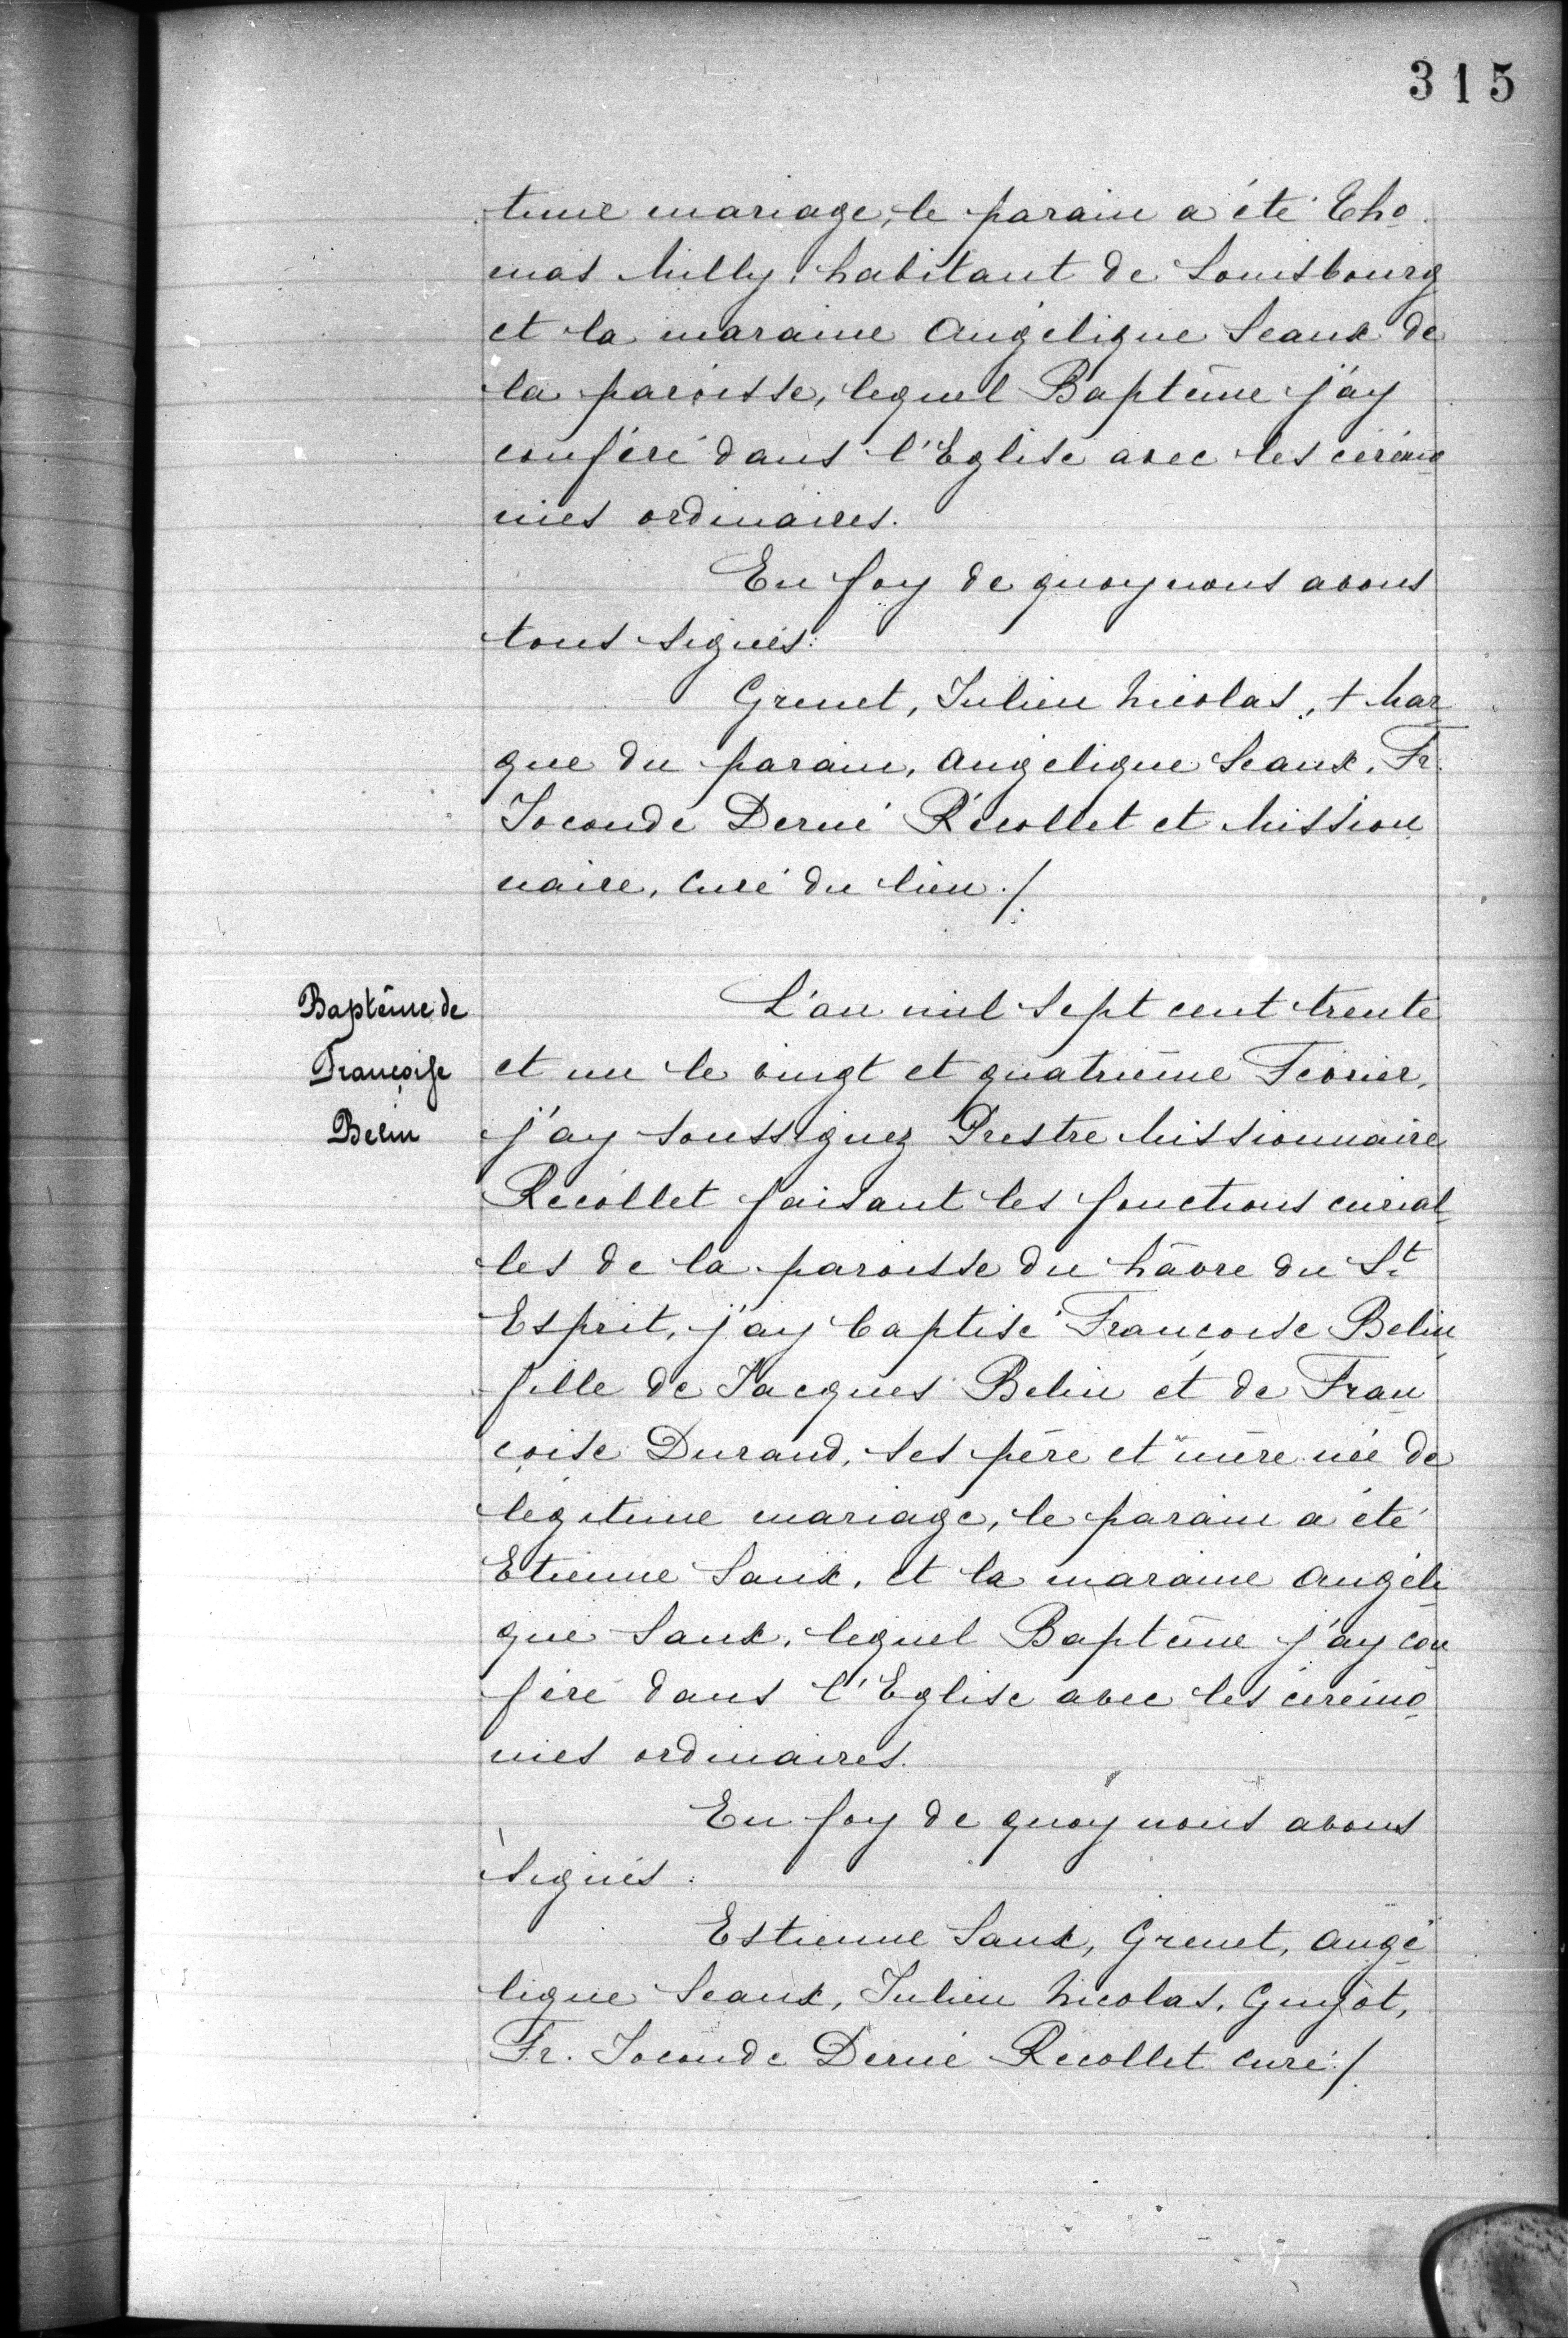 315
time mariage, le parain a été Tho
mas Milly, habitant de Louisbourg
et la maraine Angélique Seaux de
la paroisse, lequel Baptême j'ay
conféré dans l'Eglise avec les cérémo
nies ordinaires.
En foy de quoy nous avons
tous signés:
Grenet, Julien Nicolas, + Mar
que du parain, Angélique Seaux, Fr.
Joconde Derné Récollet et Mission
naire, Curé du lieu./
Baptême de
Françoise
Belin
L'an mil sept cent trente
et un le vingt et quatrième Février,
j'ay soussignez Prestre Missionnaire
Recollet faisant les fonctions curial
les de la paroisse du hâvre du St
Esprit, j'ay baptisé Françoise Belin
fille de Jacques Belin et de Fran
çoise Durand, ses père et mère née de
légitime mariage, le parain a été
Etienne Saux, et la maraine Angéli
que Saux, lequel Baptême j'ay con
féré dans l'Eglise avec les cérémo
nies ordinaires.
En foy de quoy nous avons
signés:
Estienne Saux, Grenet, Angé
lique Seaux, Julien Nicolas, Guyot,
Fr. Joconde Derné Recollet curé./